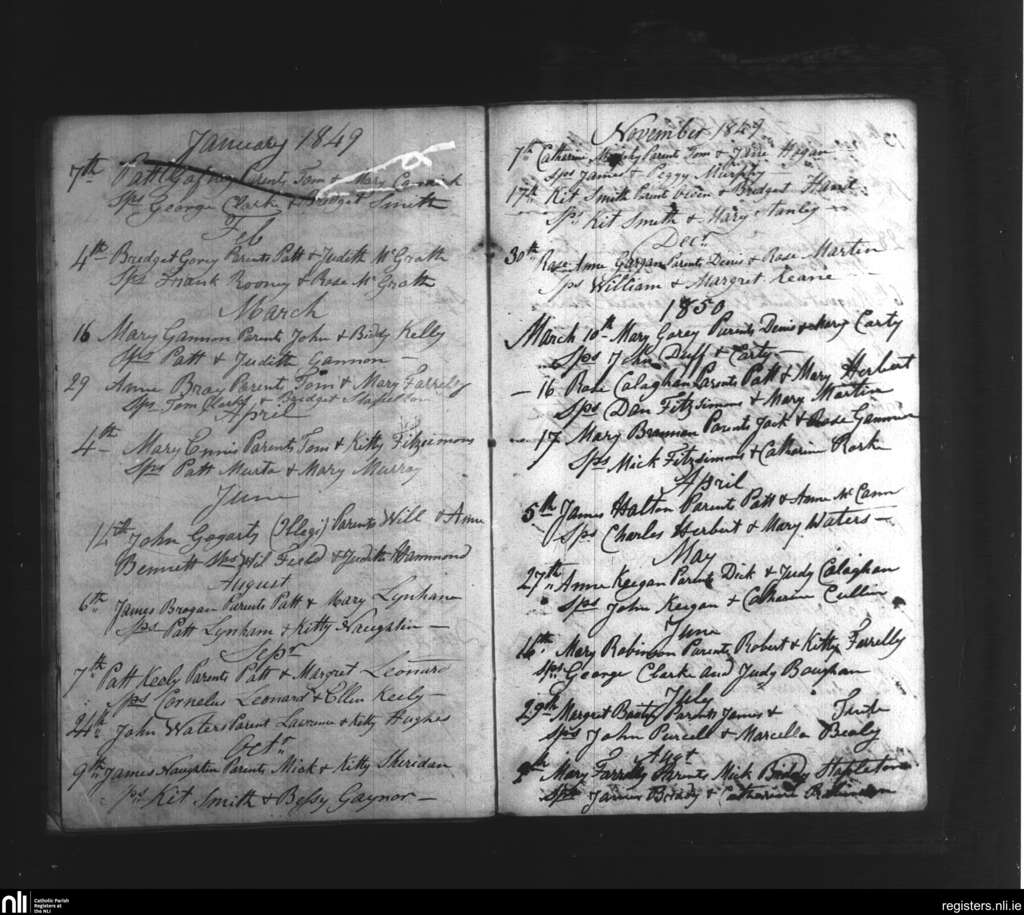 January 1849
7th Patt Parents Tom & Mary
Sps George Clark & Bridget Smith
Feb
4th Bridget Gorey Parents Patt & Judith McGrath
Sps Frank Rooney & Rose McGrath
March
16 Mary Gannon Parents John & Biddy Kelly
Sps Patt & Judith Gannon —
29 Anne Bray Parent Tom & Mary Farrelly
Sps Tom Clarke & Bridget
April
4th Mary Ennis Parents Tom & Kitty Fitzsimons
Sps Patt Murta & Mary Murray
June
14th John Gogarty (Illegi) Parents Will & Anne
Bennett Sps Wil Field & Judith Hammond
August
6th James Brogan Parents Patt & Mary Lynham
Sps Patt Lynham & Kitty Naughtin —
Sepr
7th Patt Keely Parents Patt & Margret Leonard
Sps Cornelius Leonard & Ellen Keely
24th John Waters Parent Lawrence & Kitty Hughes
Octr
9th James Naughtin Parents Mick & Kitty Sheridan
Sps Kit Smith & Bessy Gaynor —
November 1849
7th Catherine Murphy Parents Tom & Jane Hagan
Sps James & Peggy Murphy
17th Kit Smith Parent Owen & Bridget
Sps Kit Smith & Mary Stanley
Decr
30th Rose Anne Gargan Parents Denis & Rose Martin
Sps William & Margret Keane
1850
March 10th Mary Gorey Parents Denis & Mary Carty
Sps John Duff & Carty —
— 16 Rose Calaghan Parents Patt & Mary Herbert
Sps Dan Fitzsimons & Mary Martin
17 Mary Brannan Parents Jack & Rose Gannon
Sps Mick Fitzsimons & Catherine Rork
April
5th James Halton Parent Patt & Anne McCann
Sps Charles Herbert & Mary Waters —
May
27th Anne Keegan Parents Dick & Judy Calaghan
Sps John Keegan & Catherine Cullin
June
16th Mary Robinson Parents Robert & Kitty Farrelly
Sps George Clarke and Judy Boughan
July
29th Margret Parents James &
Sps John Purcell & Marcella Bealy
Augt
Mary Farrelly Parents Mick Biddy Stapleton
Sps James Brady & Catherine Robinson
nli
Catholic Parish
Registers at
the NLI
registers.nli.ie